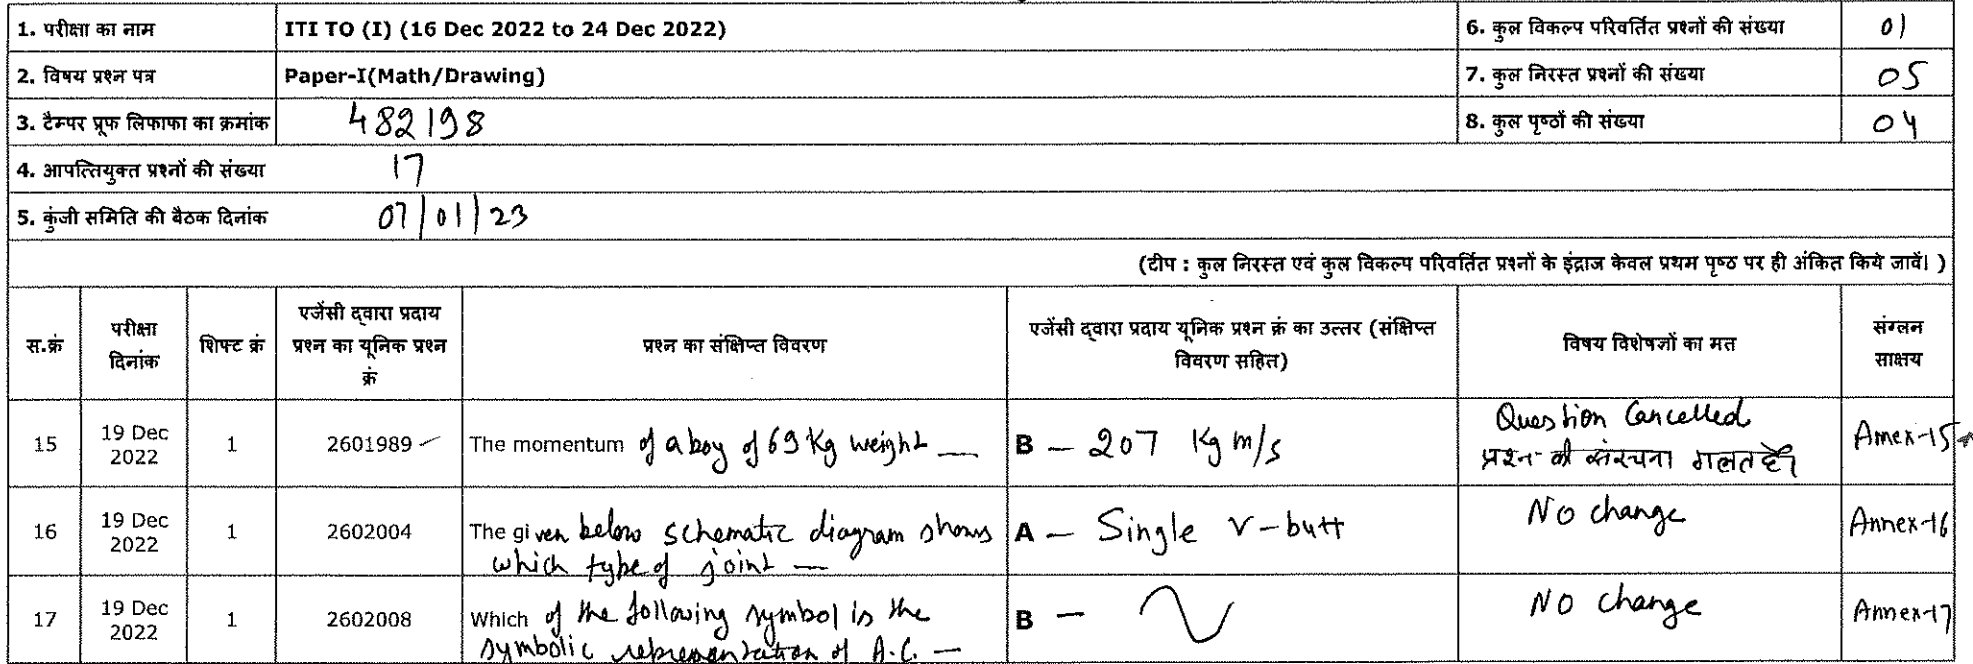 1. परीक्षा का नाम ITI TO (I) (16 Dec 2022 to 24 Dec 2022) 6. कुल विकल्प परिवर्तित प्रश्नों की संख्या 01
2. विषय प्रश्न पत्र Paper-I(Math/Drawing) 7. कुल निरस्त प्रश्नों की संख्या 05
3. टैम्पर प्रूफ लिफाफा का क्रमांक 482198 8. कुल पृष्ठों की संख्या 04
4. आपत्तियुक्त प्रश्नों की संख्या 17
5. कुंजी समिति की बैठक दिनांक 07/01/23
(टीप : कुल निरस्त एवं कुल विकल्प परिवर्तित प्रश्नों के इंद्राज केवल प्रथम पृष्ठ पर ही अंकित किये जावें। )
स.क्रं
परीक्षा
दिनांक
शिफ्ट क्रं
एजेंसी द्वारा प्रदाय
प्रश्न का यूनिक प्रश्न
क्रं
प्रश्न का संक्षिप्त विवरण
एजेंसी द्वारा प्रदाय यूनिक प्रश्न क्रं का उत्तर (संक्षिप्त
विवरण सहित)
विषय विशेषज्ञों का मत
संग्लन
साक्षय
15
19 Dec
2022
1
2601989
The momentum of a boy of 69 Kg weight —
B — 207 Kg m/s
Question Cancelled
प्रश्न की संरचना गलत है।
Annex-15
16
19 Dec
2022
1
2602004
The given below schematic diagram shows
which type of joint —
A — Single V-butt
No change
Annex-16
17
19 Dec
2022
1
2602008
Which of the following symbol is the
symbolic representation of A.C. —
B — ∿
No change
Annex-17